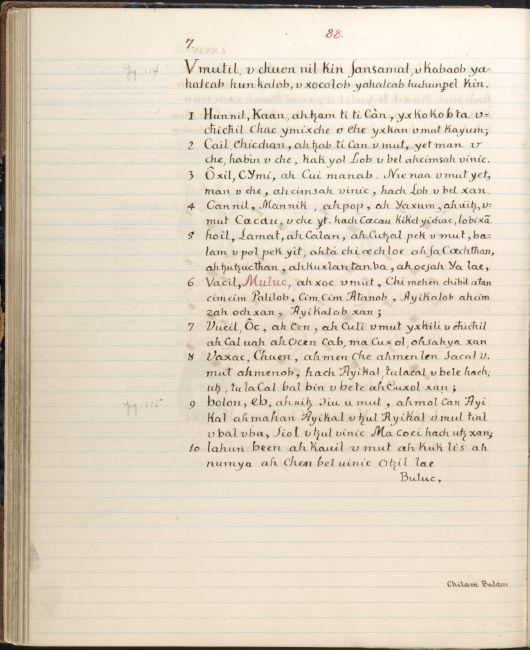 88.
7.
pg. 114
V mutil, v chuen nil Kin Sansamal, v kabaob ya-
halcab hun kalob, v xocolob yahalcab huhunpel Kin.
1 Hunnil, Kaan, ahꜩam ti ti Càn, yx Kokobta v-
chichil Chac ymixche v Che yxkan v mut Kayum;
2 Cail Chicchan, ahꜩab ti Can v mut, yet man v
che, habin v che, Kak yol Lob v bel ahcimsah vinic.
3 Ôxil, Cymi, ah Cui manab. Nicnaa v mut yet,
man v che, ah cimsah vinic, hach Lob v bel xan.
4 Cannil, Mannik, ah pop, ah Yaxum, ahuitz, v-
mut Cacau, v che yt. hach Cacau
5 hoil, Lamat, ah Calan, ah Cutzal pek v mut, ba-
lam v pol pek yit, ahtà chi ah
ah Kuxlan tanba, ah ocsah Ya lae,
6 Vacil, Muluc, ah xoc v mut, Chi mehen chibil atan
cimcim Palilob, Cim Cim Atanob, Ayikalob ahcim
zah och xan, Ayikalob xan;
7 Vucil, Ôc, ah Cen, ah Culi v mut yxkili v chichil
ah Cal uah ah Ocen Cab, ma Cux ol, ohsahya xan
8 Vaxac, Chuen, ahmen Che ahmen ten Sacal v.
mut ahmenob, hach Ayikal, tulacal v bete hach
utz, tu la Cal bal bin v bete ah Cuxol xan;
9 bolon, eb, ahuitz Diu u mut, ahmol Can Ayi
Kal ahmahan Ayikal v tzul Ayikal v mul tial
v bal vba, Siol v tzul vinic Ma Coci hach utz xan;
pg. 115
10 lahun been ah Kauil v mut ah Kuk lis ah
numya ah Chen bel uinic Otzil lae
Buluc,
Chilam Balam